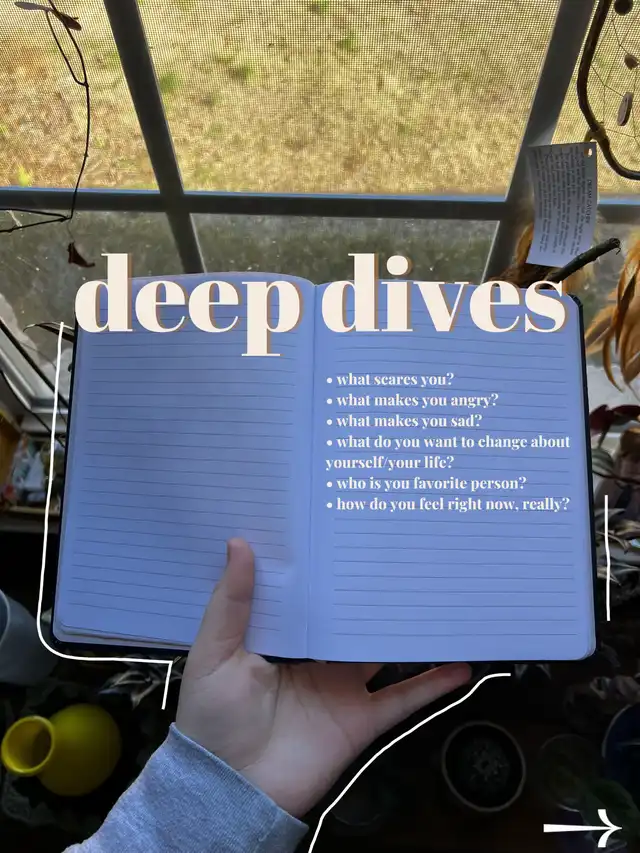 deep dives
• what scares you?
• what makes you angry?
• what makes you sad?
• what do you want to change about
yourself/your life?
• who is you favorite person?
• how do you feel right now, really?